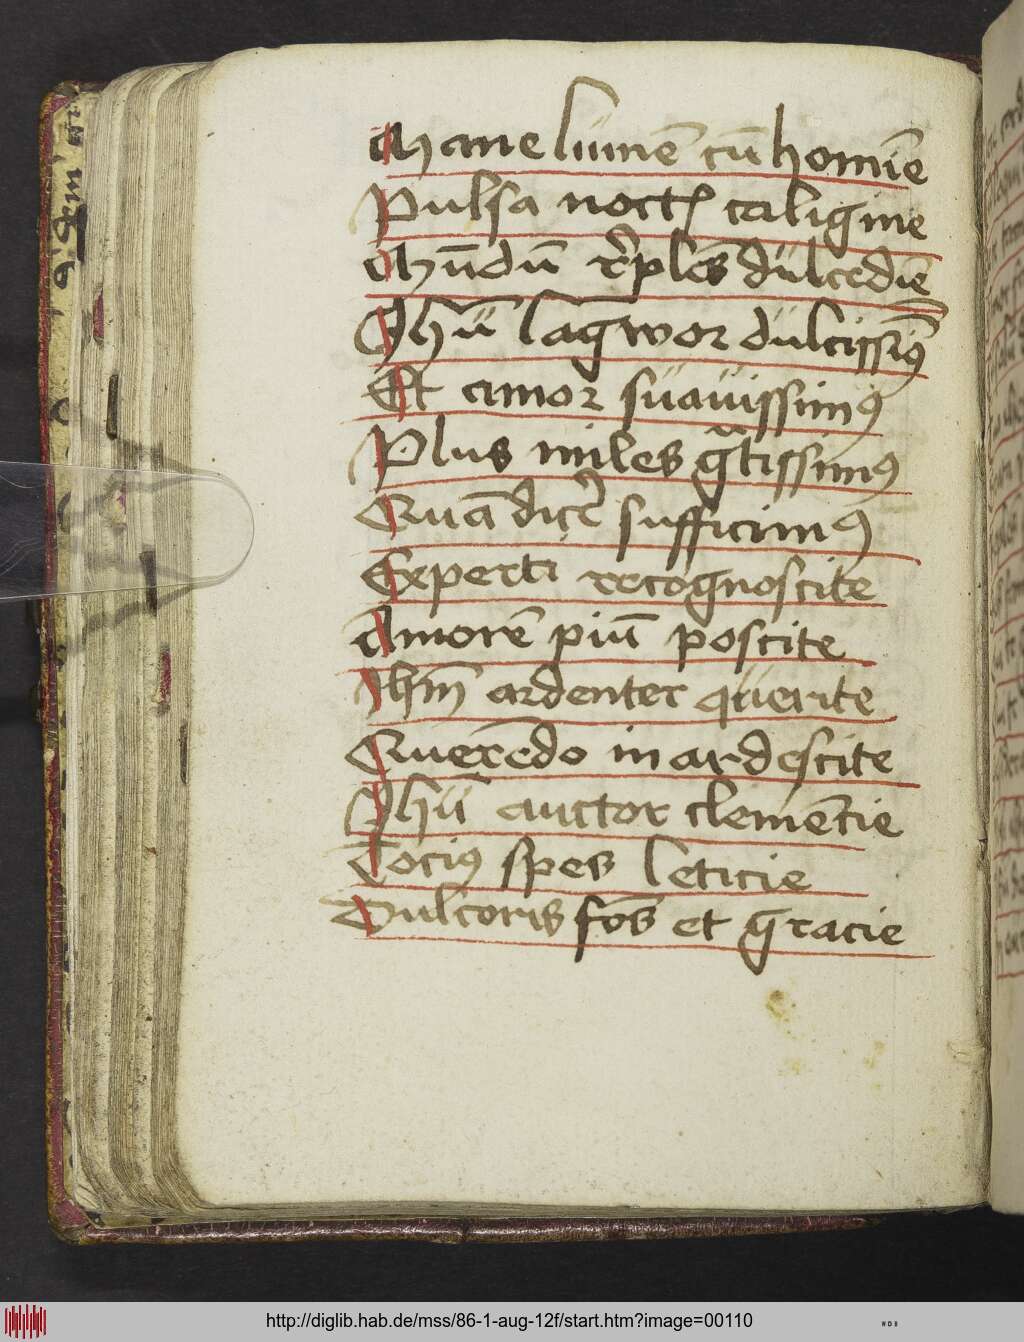 Mane lumē cū homīe
Pulsa noctꝭ caligine
Mūdū r̄plēs dulcedīe
Ihū lāgwor dulcissīꝰ
Et amor suauissimꝰ
Plus miles gͣtissimꝰ
Quā dicē sufficimꝰ
Experti recognoscite
Amorē piū poscite
Ihm̄ ardenter querite
Querēdo inardescite
Ihū auctor clemētie
Tociꝰ spes leticie
Dulcoris fōs et gracie
http://diglib.hab.de/mss/86-1-aug-12f/start.htm?image=00110